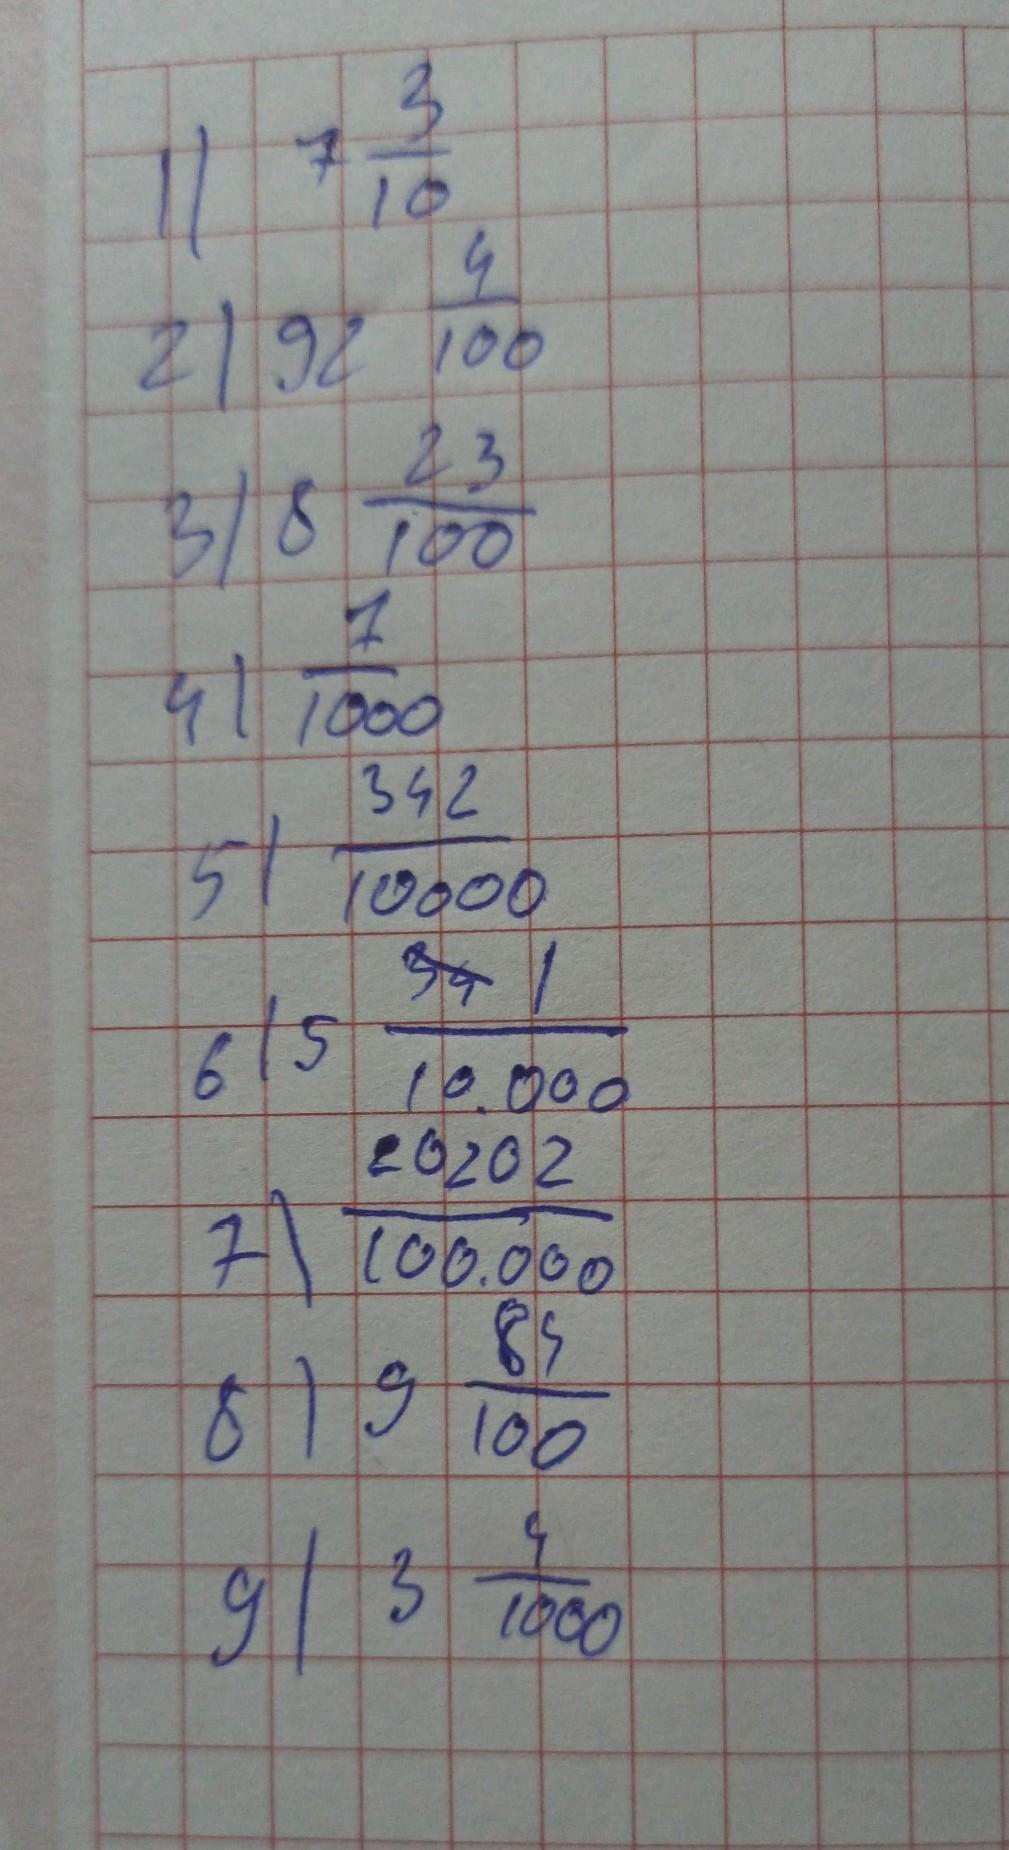 1) 7 3/10
2) 92 4/100
3) 8 23/100
4) 7/1000
5) 342/10000
6) 5 1/10.000
7) 20202/100.000
8) 9 84/100
9) 3 4/1000